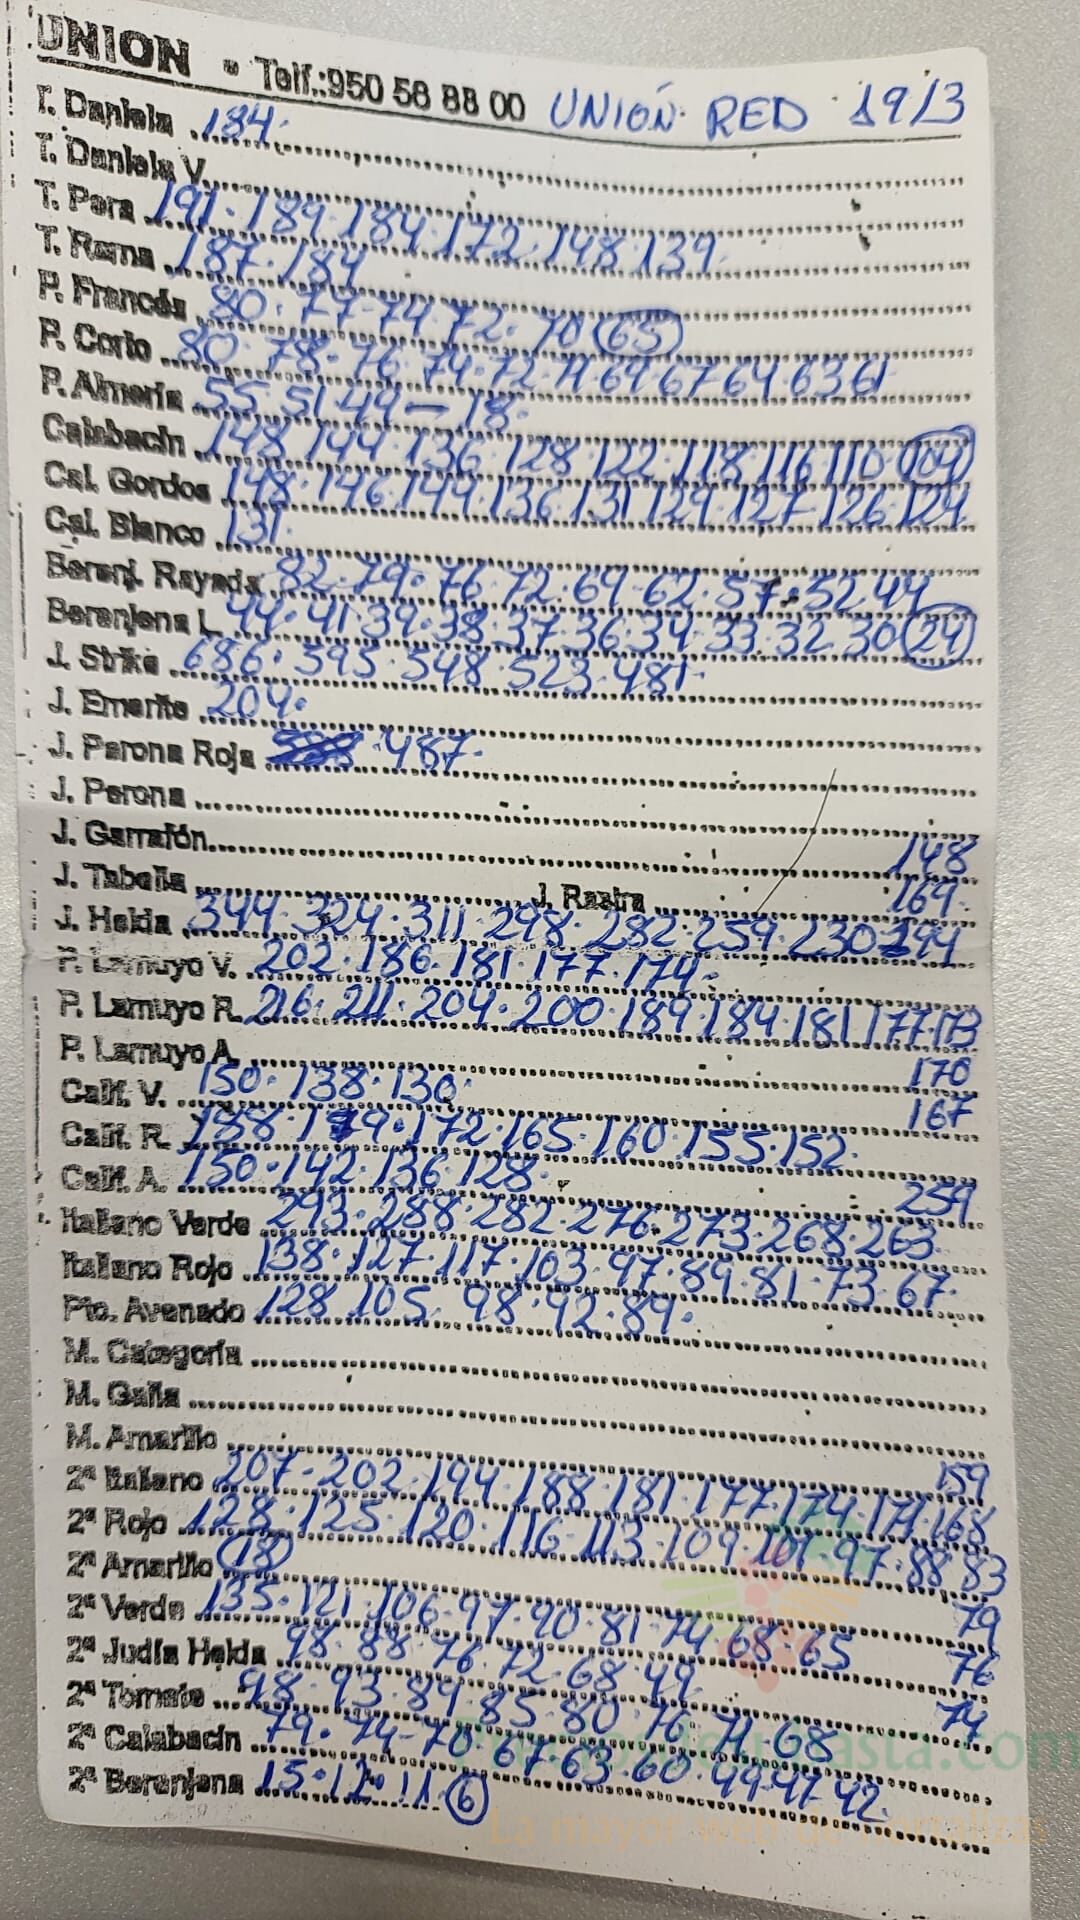 UNION - Telf.:950 58 88 00 UNIÓN RED 19/3
T. Daniela 184.
T. Daniela V.
T. Pera 191. 189. 184. 172. 148. 139.
T. Rama 187. 184
P. Francés 80. 77. 74. 72. 70 (65)
P. Corto 80. 78. 76. 74. 72. 71. 69. 67 64. 63 61
P. Almería 55. 51. 49 — 18.
Calabacín 148. 144. 136. 128. 122. 118. 116. 110. (104)
Cal. Gordos 148. 146. 144. 136. 131. 129. 127. 126. 124.
Cal. Blanco 131.
Berenj. Rayada 82. 79. 76. 72. 69. 62. 57. 52. 44
Berenjena L. 44. 41. 39. 38. 37. 36. 34. 33. 32. 30 (24)
J. Strike 686. 595. 548. 523. 481.
J. Emerite 204.
J. Perona Roja 487.
J. Perona
J. Garrafón 148
J. Tabella J. Rastra 169.
J. Helda 344. 324. 311. 298. 282. 259. 230. 194
P. Lamuyo V. 202. 186. 181. 177. 174.
P. Lamuyo R. 216. 211. 204. 200. 189. 184. 181. 177. 173
P. Lamuyo A. 170
Calif. V. 150. 138. 130. 167
Calif. R. 188. 179. 172. 165. 160. 155. 152.
Calif. A. 150. 142. 136. 128. 259
Italiano Verde 293. 288. 282. 276. 273. 268. 263
Italiano Rojo 138. 127. 117. 103. 97. 89. 81. 73. 67.
Pto. Asenado 128. 105. 98. 92. 89.
M. Categoría
M. Galia
M. Amarillo 159
2ª Italiano 207. 202. 194. 188. 181. 177. 174. 171. 168
2ª Rojo 128. 125. 120. 116. 113. 109. 101. 97. 88 83
2ª Amarillo (18) 79
2ª Verde 135. 121. 106. 97. 90. 81. 74. 68. 65 76
2ª Judía Helda 98. 88. 76. 72. 68. 49. 74
2ª Tomate 98. 93. 89. 85. 80. 76. 71. 68
2ª Calabacín 79. 74. 70. 67. 63. 60. 49. 47. 42.
2ª Berenjena 15. 12. 11. (6)
La mayor web de hortalizas